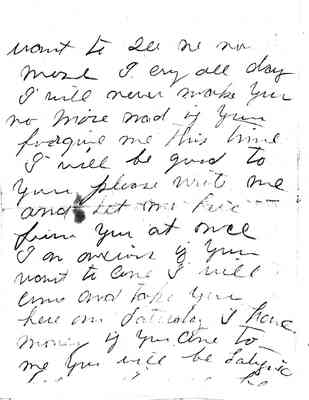 want to see me no
more I cry all day
I will never make you
no more mad if you
forgive me this time
I will be good to
you please write me
and let me hear
from you at once
I am anxious if you
want to come I will
come and take you
here on Saturday I have
money if you come to
me you will be